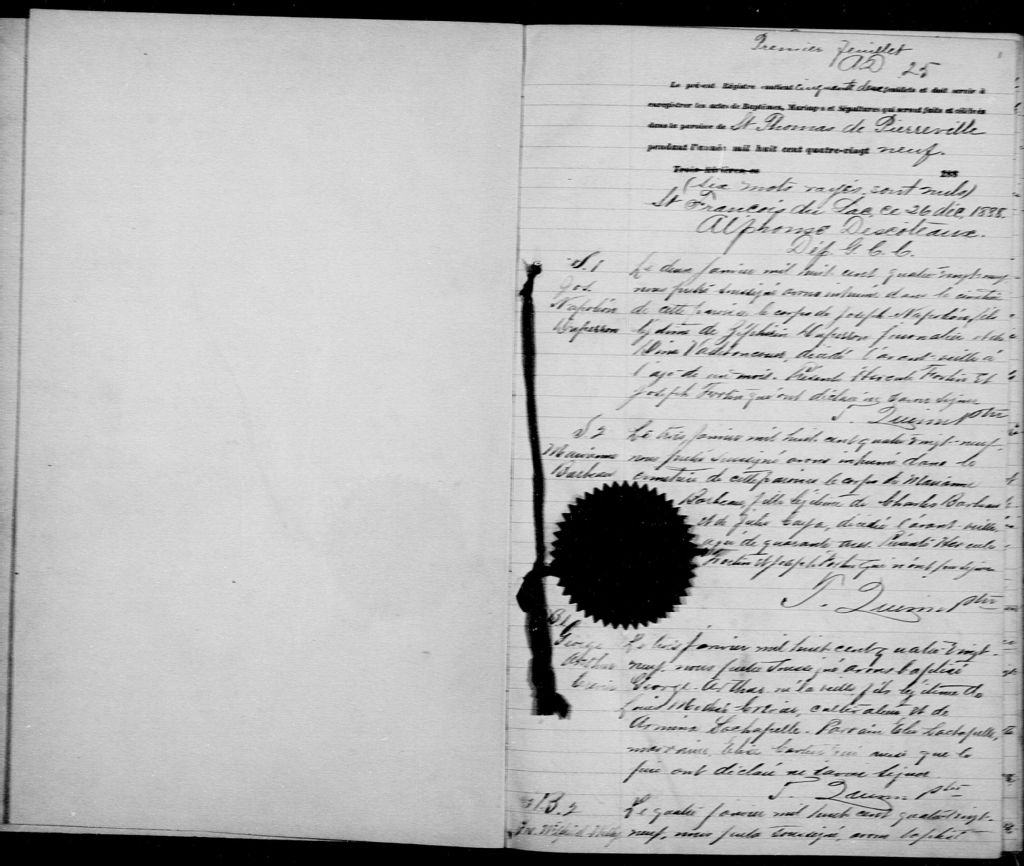 Premier feuillet
AD 25
Le présent Régistre contient cinquante deux feuillets et doit servir à
enregistrer les actes de Baptêmes, Mariages et Sépultures qui seront faits et célébrés
dans la paroisse de St Thomas de Pierreville
pendant l'année mil huit cent quatre-vingt neuf.
Trois-Rivières ce 188
(Six mots rayés sont nuls)
St François du Lac, ce 26 déc. 1888.
Alphonse Descoteaux.
Dép. G. C. C.
S. 1 Le deux janvier mil huit cent quatre vingt neuf
Jos. nous prêtre soussigné avons inhumé dans le cimetière
Napoléon de cette paroisse le corps de Joseph Napoléon, fils
légitime de Zéphirin journalier et de
décédé l'avant-veille à
l'age de un mois. Présents Hercule Fortin et
Joseph Fortin qui ont déclaré ne savoir signer
T. Quinn ptre
S. 2 Le trois janvier mil huit cent quatre vingt-neuf
Marianne nous prêtre soussigné avons inhumé dans le
Barbeau cimetière de cette paroisse le corps de Marianne
Barbeau, fille légitime de Charles Barbeau
et de Julie décédée l'avant-veille
agée de quarante ans. Présents Hercule
Fortin et Joseph Fortin qui n'ont pu signer
T. Quinn ptre
B. 1
George Le trois janvier mil huit cent quatre vingt-
Arthur neuf nous prêtre soussigné avons baptisé
George-Arthur né la veille, fils légitime de
cultivateur et de
Lachapelle. Parrain Lachapelle,
marraine qui ainsi que le
père ont déclaré ne savoir signer
T. Quinn ptre
B. 2 Le quatre janvier mil huit cent quatre vingt-
Jos. Wilfrid neuf, nous prêtre soussigné, avons baptisé